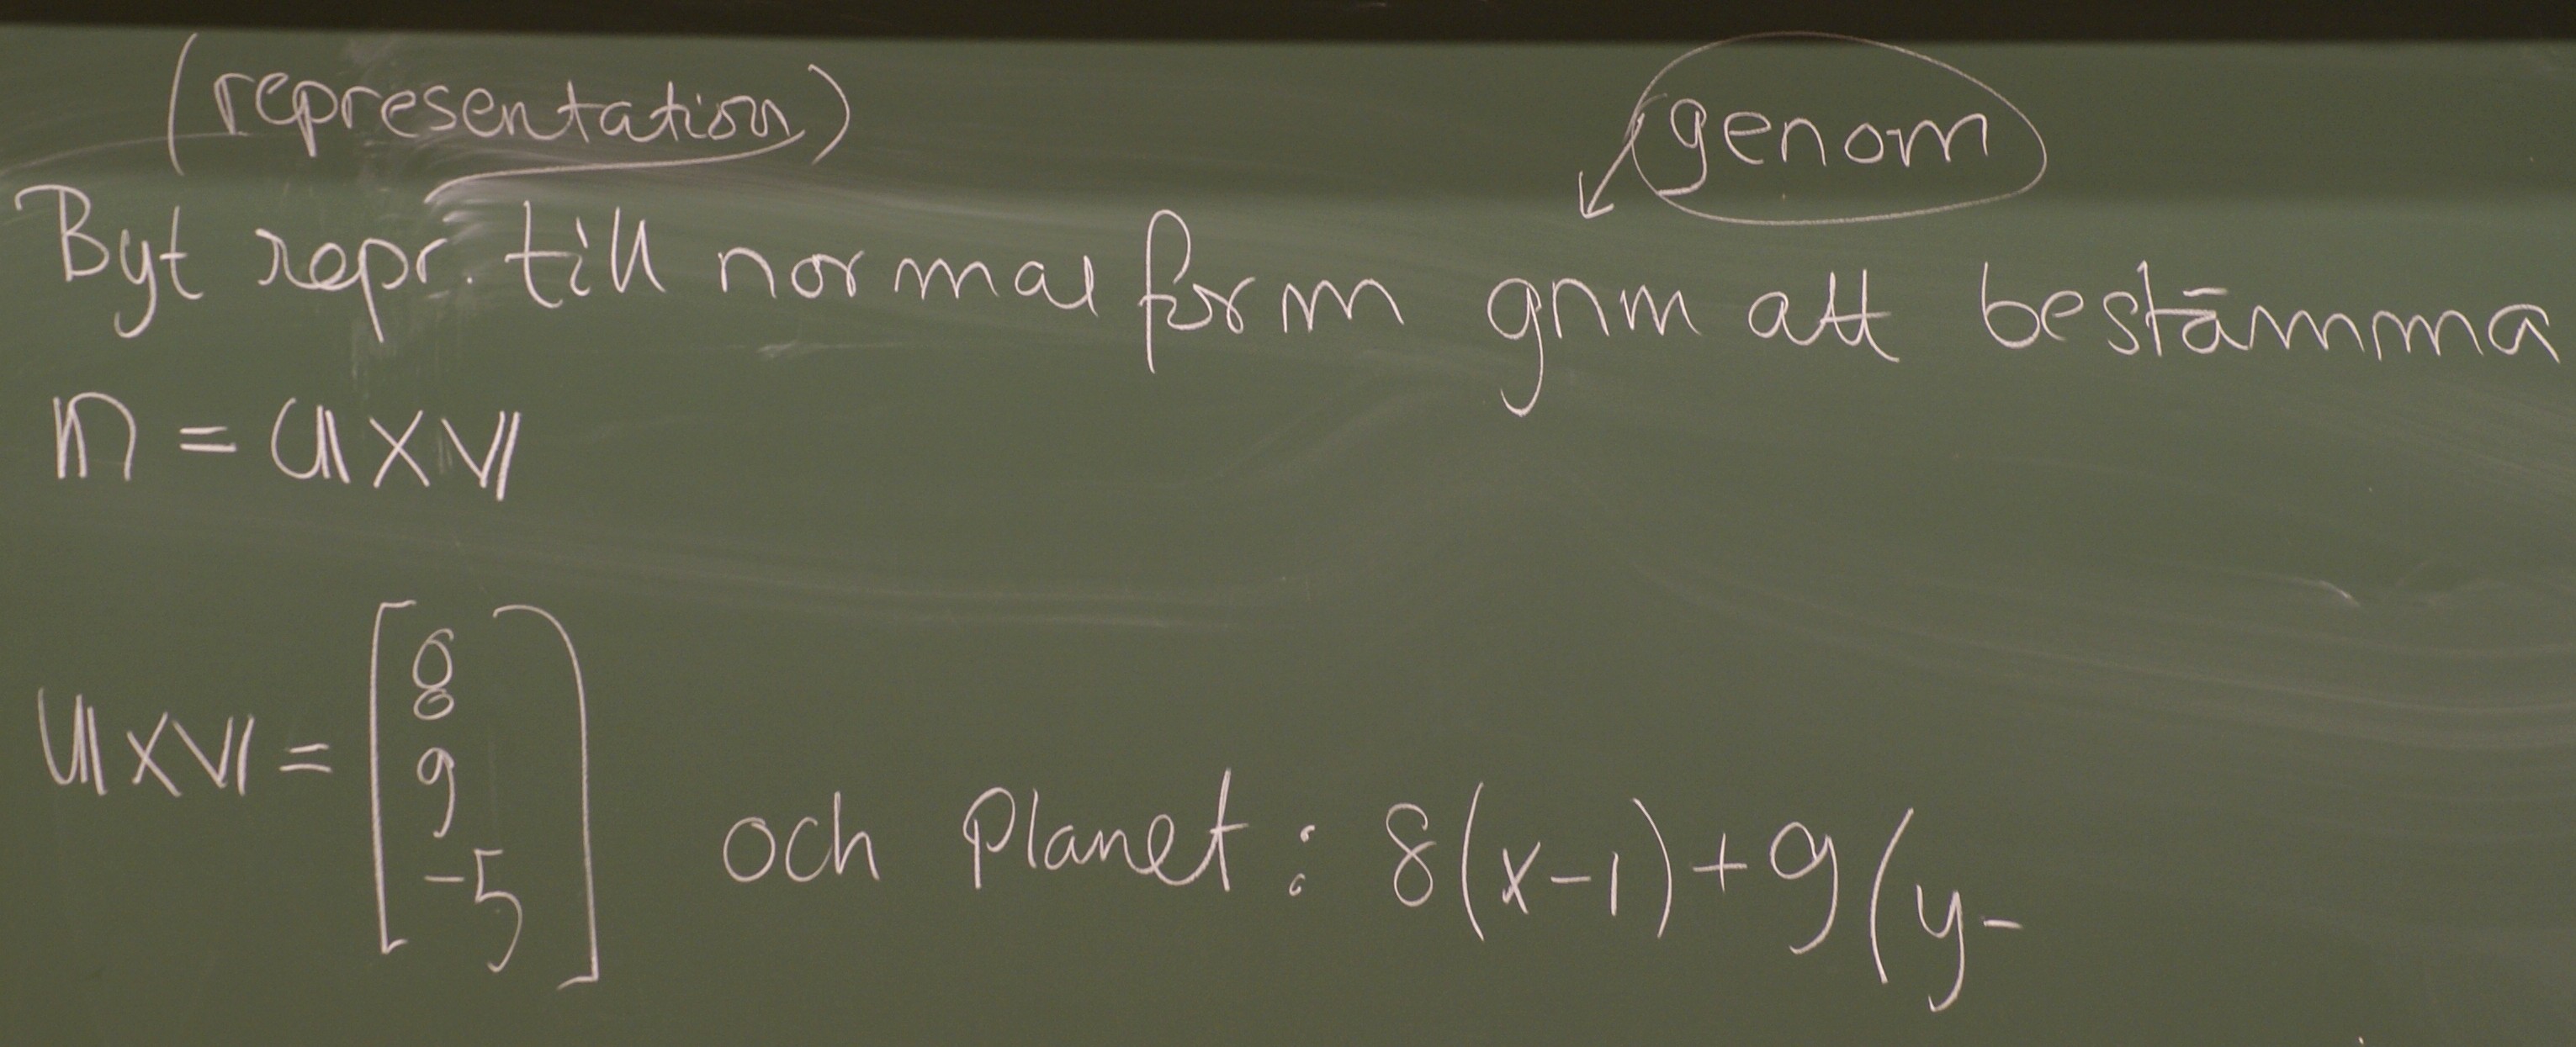 (representation) genom
Byt repr. till normal form gnm att bestämma
n = u × v
u × v = [8 9 -5] och planet: 8(x-1)+9(y-